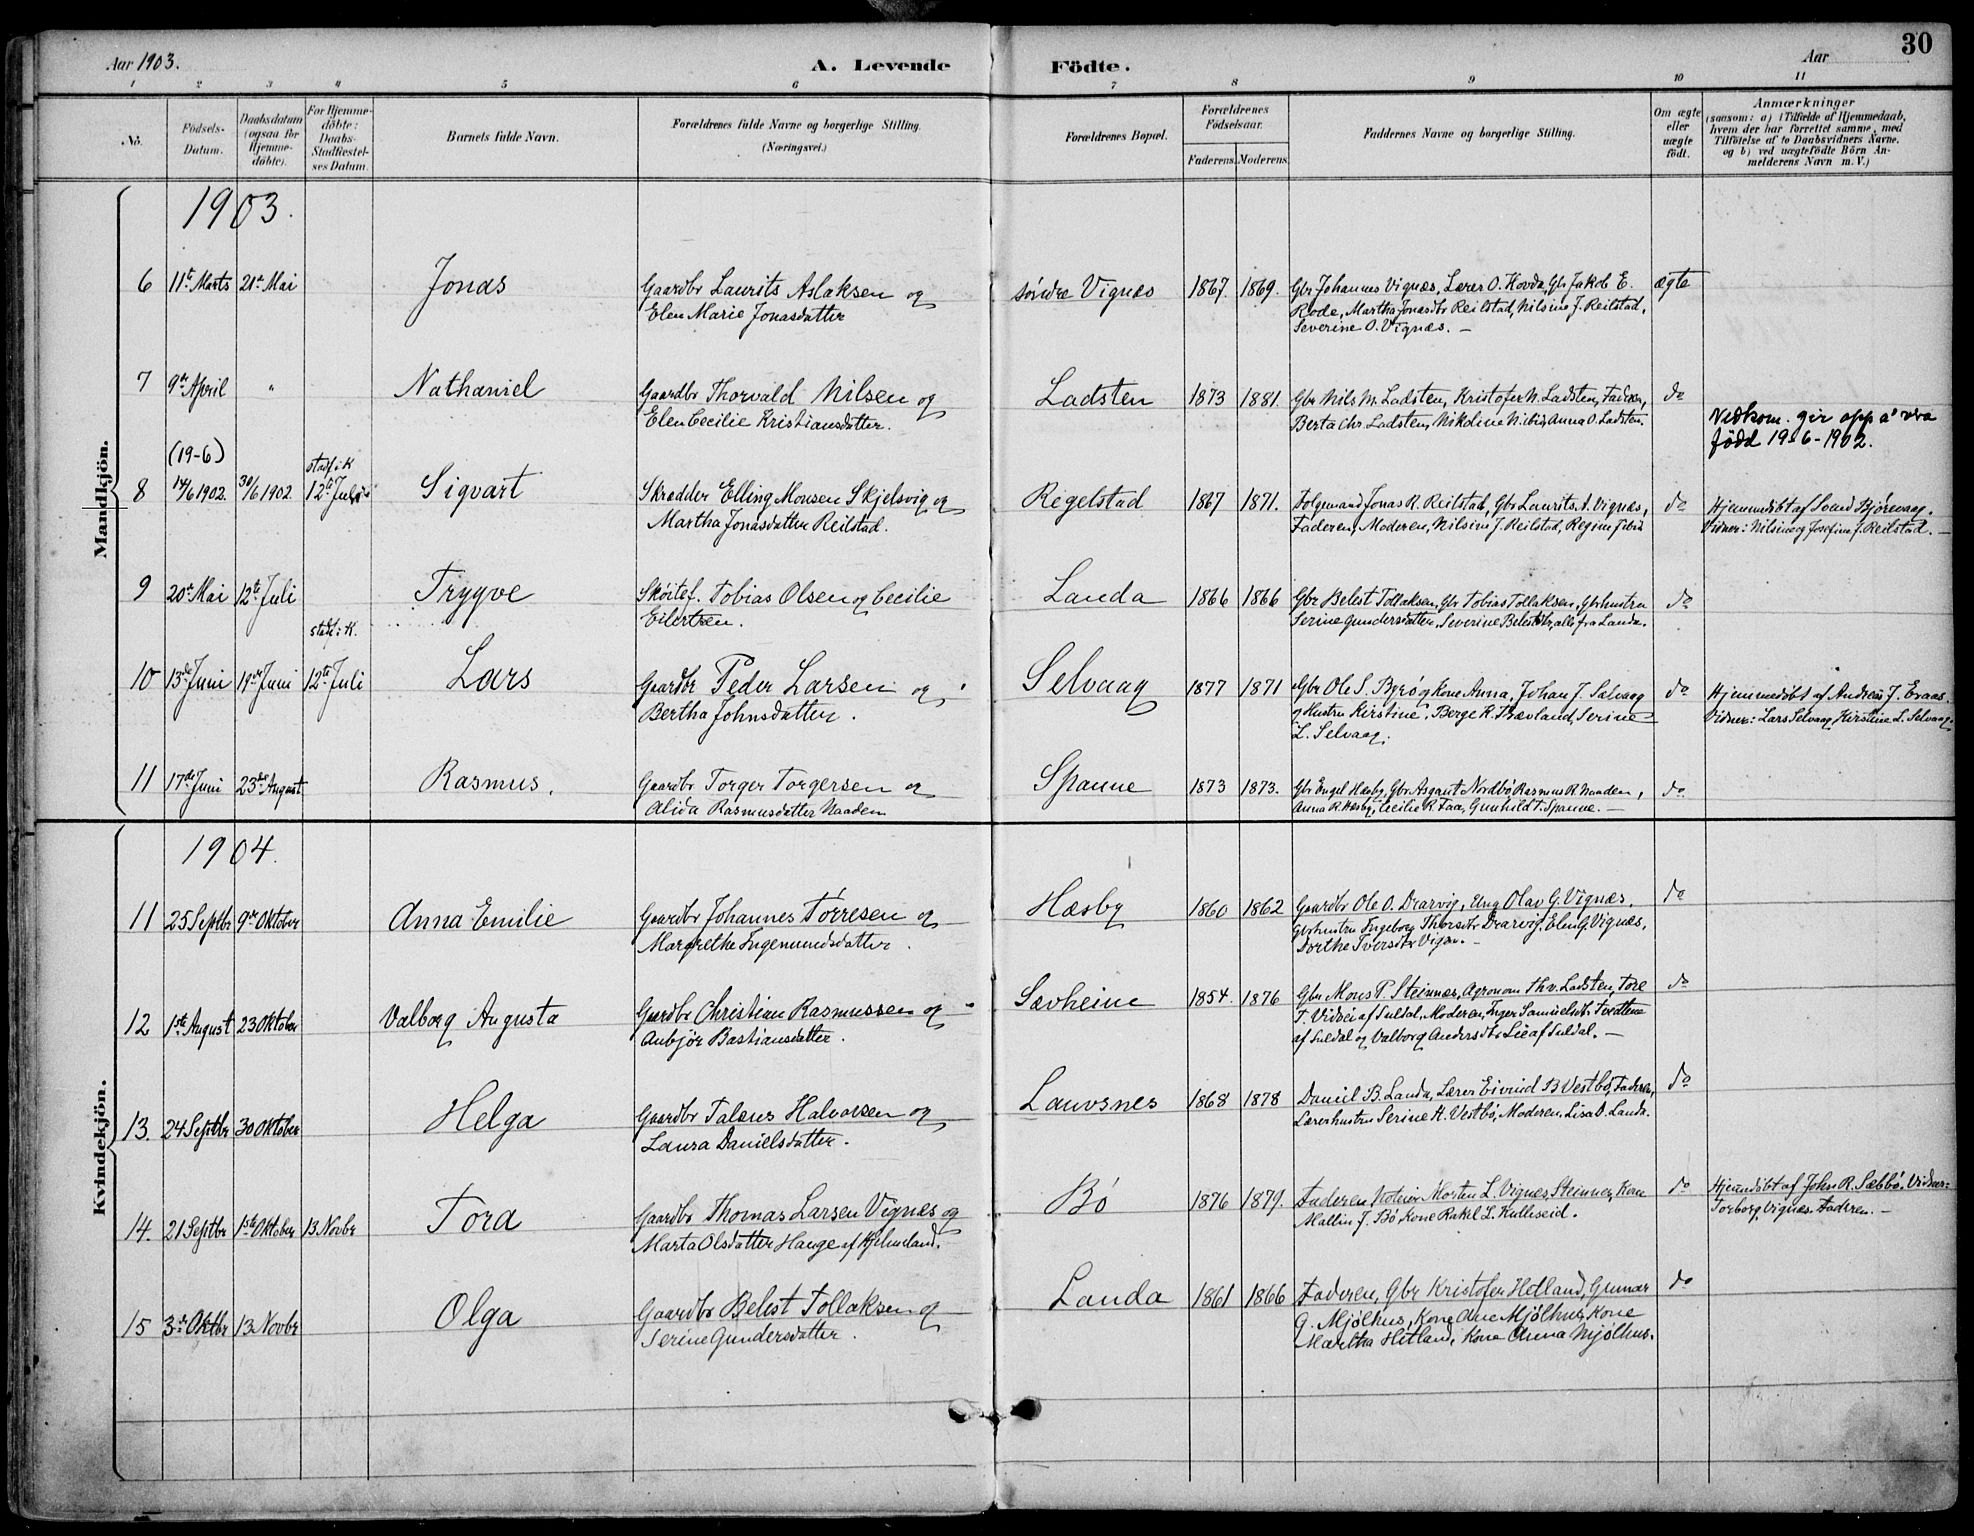 30
Aar 1903.
A. Levende Födte.
Aar
1 2 3 4 5 6 7 8 9 10 11
No.
Födsels-
Datum.
Daabsdatum
(ogsaa for
Hjemme-
döbte).
For Hjemme-
döbte:
Daabs-
Stadfæstel-
ses Datum.
Barnets fulde Navn.
Forældrenes fulde Navne og borgerlige Stilling.
(Næringsvei.)
Forældrenes Bopæl.
Forældrenes
Födselsaar.
Faderens. Moderens.
Faddernes Navne og borgerlige Stilling.
Om ægte
eller
uægte
födt.
Anmærkninger
(saasom: a) i Tilfælde af Hjemmedaab,
hvem der har forrettet samme, med
Tilföielse af to Daabsvidners Navne.
og b) ved uægtefödte Börn An-
melderens Navn m. V.)
Mandkjön.
1903.
6 11te Marts 21de Mai Jonas
Gaardbr Laurits Aslaksen og
Elen Marie Jonasdatter
söndre Vignæs 1867. 1869.
Gbr Johannes Vignæs, Lærer O. Hovda, Gbr Jakob E.
Rode, Martha Jonasdtr Reilstad, Nilsine J. Reilstad,
Severine O. Vignæs. —
ægte
7 9de April " Nathaniel
Gaardbr Thorvald Nilsen og
Elen Cecilie Kristiansdatter.
Ladsten 1873 1881.
Gbr Nils M. Ladsten, Kristofer N. Ladsten, Faderen,
Berta Chr. Ladsten, Nikoline N. ibid, Anna O. Ladsten.
do
Vedkom. gir opp å vera
född 19-6-1902.
(19-6)
stadf. i K
8 14/6 1902. 30/6 1902 12te Juli Sigvart
Skrædder Elling Monsen Skjelsvig og
Martha Jonasdatter Reilstad.
Regelstad 1867 1871.
Folgemand Jonas R. Reilstad, Gbr Laurits A. Vignæs,
Faderen, Moderen, Nilsine J. Reilstad, Regine J. ibid
do
Hjemmedöbt af Svend Bjørevaag.
Vidner: Nilsine og Josefine J. Reilstad. —
9 20de Mai 12te Juli Trygve
Skøitef. Tobias Olsen og Cecilie
Eilertsen.
Landa 1866 1866
Gbr Belest Tollaksen, Gbr Tobias Tollaksen, Gbrhustru
Serine Gundersdatter, Severine Belestdtr, alle fra Landa.
do
stadf. i K.
10 13de Juni 19de Juni 12te Juli Lars
Gaardbr Peder Larsen og
Bertha Johnsdatter.
Selvaag 1877 1871
Gbr Ole S. Byrö og Kone Anna, Johan J. Sælvaag
og Hustru Kirstine, Berge K. Bævland, Serine
L. Selvaag.
do
Hjemmedöbt af Andreas J. Eraas.
Vidner: Lars Selvaag, Kirstine L. Selvaag.
11 17de Juni 23de August Rasmus.
Gaardbr Torger Torgersen og
Alida Rasmusdatter Naaden
Spanne 1873 1873.
Gbr Engel Hæsby, Gbr Asgaut Nordbö, Rasmus R. Naaden,
Anna R. Hæsby, Cecilie R. Faa, Gunhild T. Spanne. —
do
Kvindekjön.
1904.
11 25 Septbr 9de Oktober Anna Emilie
Gaardbr Johannes Törresen og
Margrethe Ingemundsdatter.
Hæsby 1860 1862
Gaardbr Ole O. Drarvig, Ung. Olav G. Vignæs.
Gbrhustru Ingeborg Thorsdtr Drarvig, Elen G. Vignæs,
Dorthe Iversdtr Vigan. —
do
12 1ste August 23 Oktober Valborg Augusta
Gaardbr Christian Rasmussen og
Anbjör Bastiansdatter.
Sævheim 1854. 1876
Gbr Mons P. Steinnes, Agronom Thv. Ladsten, Tore
T. Vidvei af Suldal, Moderen, Inger Samuelsdtr Tvedtene
af Suldal og Valborg Andersdtr Lie af Suldal. —
do
13. 24 Septbr 30 Oktober Helga
Gaardbr Talenus Halvorsen og
Laura Danielsdatter.
Lauvsnes 1868 1878
Daniel B. Landa, Lærer Eivind B Vestbö, Faderen,
Lærerhustru Serine A. Vestbö, Moderen, Lisa D. Landa.
do
14. 21 Septbr 1ste Oktober 13 Novbr Tora
Gaardbr Thomas Larsen Vignæs og
Marta Olsdatter Hauge af Hjelmeland.
Bö 1876 1879.
Faderen, Morten L. Vignæs, Steinnes, Kone
Mallin J. Bö, Kone Rakel L. Kulleseid.
do
Hjemdöbt af John R. Sæbbö. Vidner:
Torborg Vignæs. Faderen. —
15 3de Oktbr 13 Novbr Olga
Gaardbr Belest Tollaksen og
Serine Gundersdatter.
Landa 1861 1866
Faderen, Gbr Kristofer Hetland, Gunnar
G. Mjølhus, Kone Ane Mjølhus, Kone
Martha Hetland, Kone Anna Mjölhus.
do